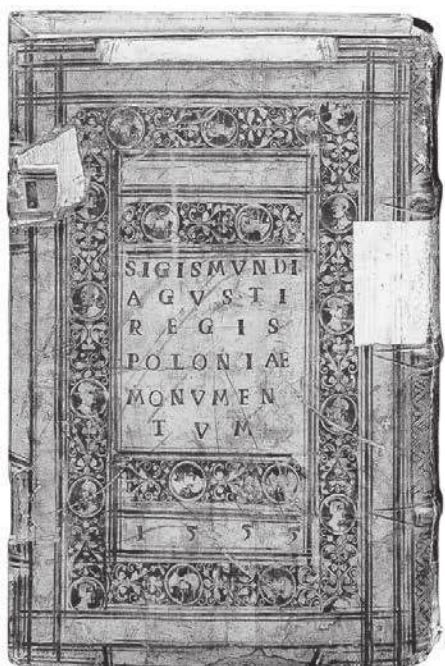 SIGISMVNDI
AGVSTI
REGIS
POLONIAE
MONVMEN
TVM
1555